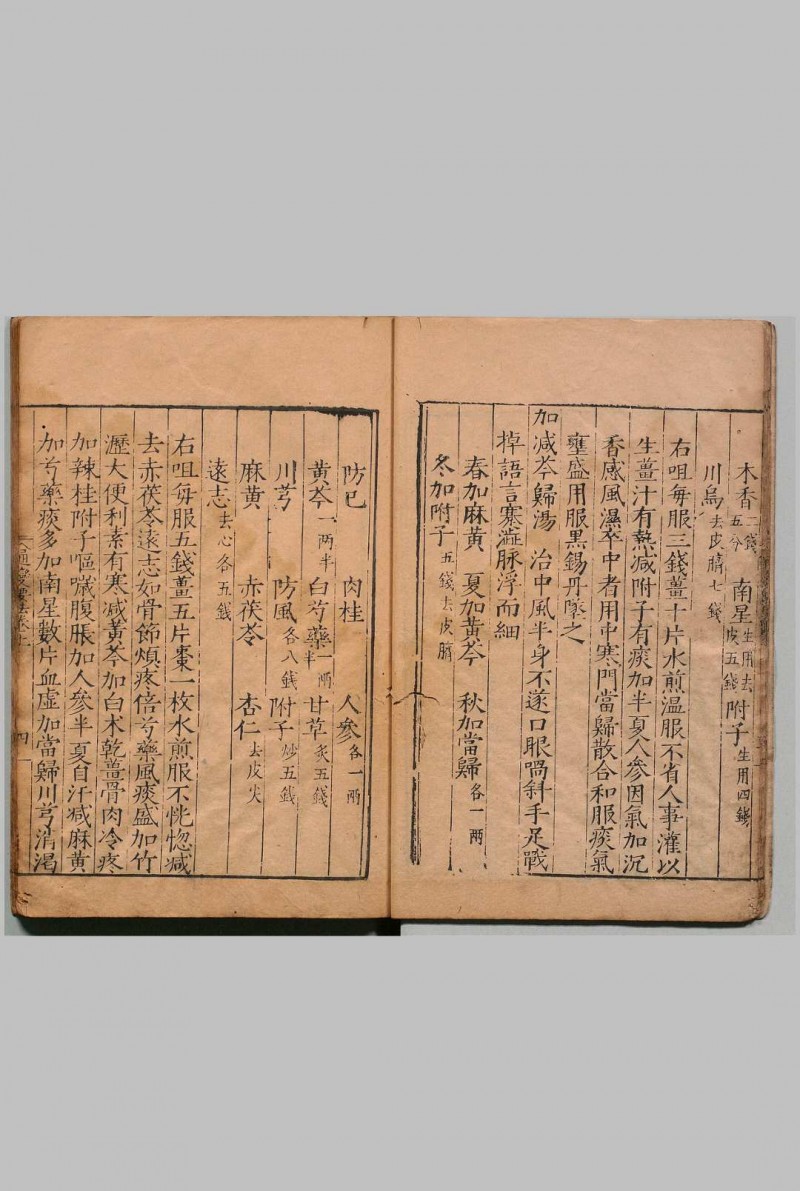 木香二錢五分 南星生用去皮五錢 附子生用四錢
川烏去皮臍七錢
右咀每服三錢薑十片水煎温服不省人事灌以
生薑汁有熱减附子有痰加半夏人參因氣加沉
香感風濕卒中者用中寒門當歸散合和服痰氣
壅盛用服黑錫丹墜之
加减芩歸湯 治中風半身不遂口眼喎斜手足戰
掉語言蹇澁脉浮而細
春加麻黄 夏加黄芩 秋加當歸各一兩
冬加附子五錢去皮臍
防已 肉桂 人參各一兩
黄芩一兩半 白芍藥一兩半 甘草炙五錢
川芎 防風各八錢 附子炒五錢
麻黄 赤茯苓 杏仁去皮尖
遠志去心各五錢
右咀每服五錢薑五片棗一枚水煎服不恍惚减
去赤茯苓遠志如骨節煩疼倍芍藥風痰盛加竹
瀝大便利素有寒减黄芩加白术乾薑骨肉冷疼
加辣桂附子嘔噦腹脹加人參半夏自汗减麻黄
加芍藥痰多加南星數片血虛加當歸川芎消渴